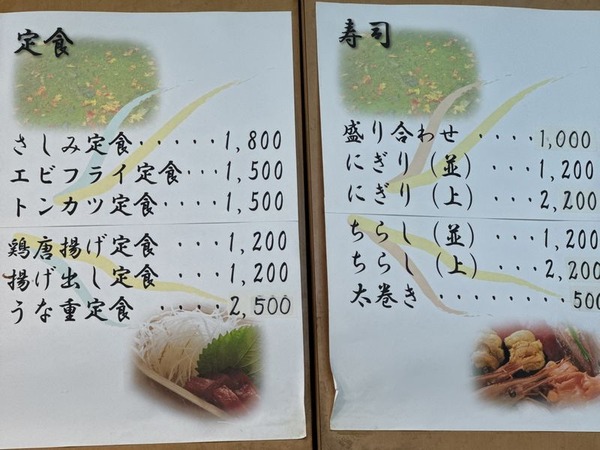 定食
さしみ定食・・・・・1,800
エビフライ定食・・・1,500
トンカツ定食・・・・1,500
鶏唐揚げ定食・・・・1,200
揚げ出し定食・・・・1,200
うな重定食・・・・2,500
寿司
盛り合わせ・・・・1,000
にぎり（並）・・・1,200
にぎり（上）・・・2,200
ちらし（並）・・・1,200
ちらし（上）・・・2,200
太巻き・・・・・・・・500